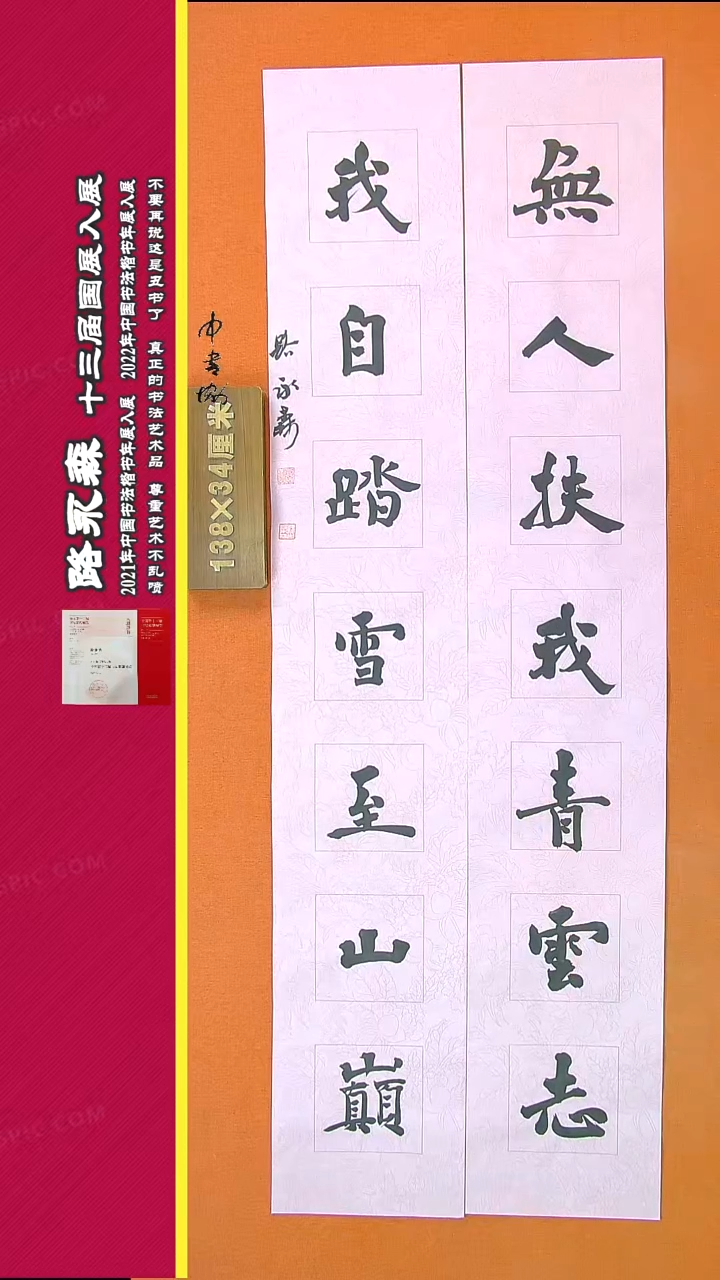 無人扶我青雲志
我自踏雪至山巔
路永森
中書協
138×34厘米
路永森 十三届国展入展
2021年中国书法楷书年展入展 2022年中国书法楷书年展入展
不要再说这是丑书了 真正的书法艺术品 尊重艺术不乱喷